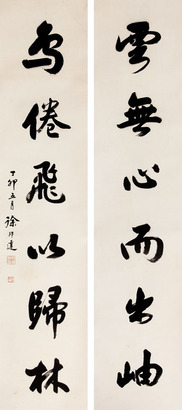 雲無心而出岫
鳥倦飛以歸林
丁卯五月 徐邦達